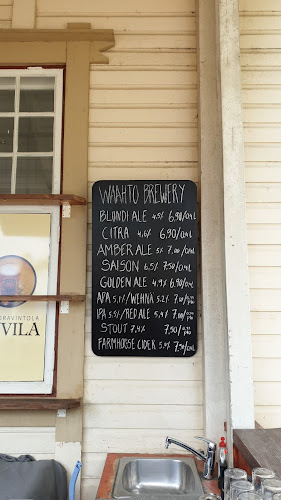 WAAHTO BREWERY
BLONDI ALE 4.5% 6,90/0.4L
CITRA 4,6% 6,90/0.4L
AMBER ALE 5% 7,00/0.4L
SAISON 6.5% 7,50/0.4L
GOLDEN ALE 4.9% 6,90/0.4L
APA 5,1%/WEHNÄ 5.2% 7,00
IPA 5.5%/RED ALE 5.4% 7,00
STOUT 7.4% 7,50
FARMHOUSE CIDER 5.4% 7,50/0.4L
RAVINTOLA
VILA